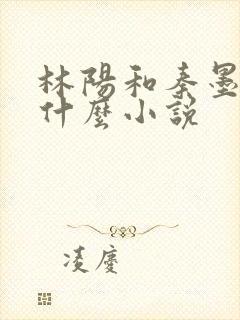 林陽和秦墨
什麼小說
凌慶